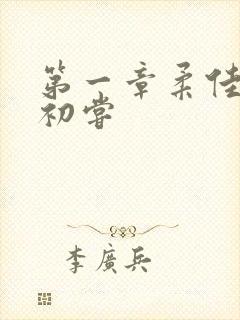 第一章柔佳
初嘗
李廣兵